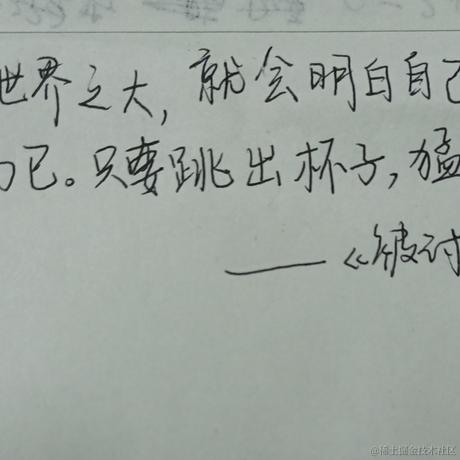 世界之大，就会明白自己
已。只要跳出杯子，猛
——《被讨
@稀土掘金技术社区